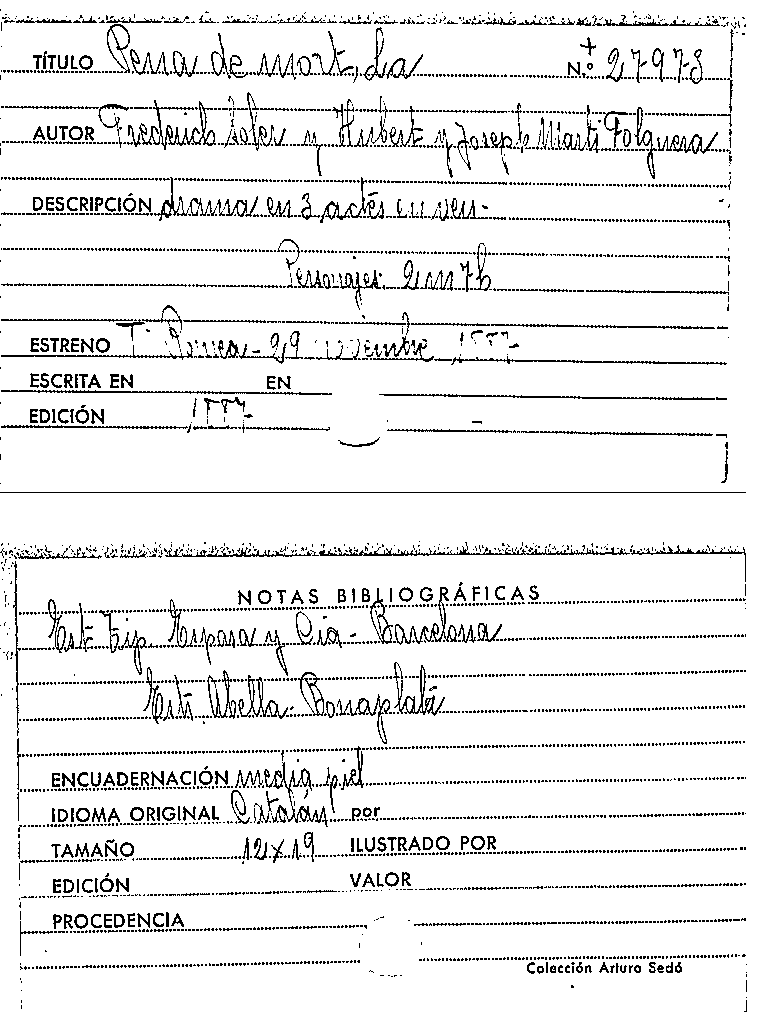 TÍTULO Pena de mort, La N.º + 27973
AUTOR Frederich Soler y Hubert y Joseph Martí Folguera
DESCRIPCIÓN drama en 3 actes en vers
Personajes: 2 m 7 h
ESTRENO T. Romea - 29 noviembre 1887
ESCRITA EN EN
EDICIÓN 1887 -
NOTAS BIBLIOGRÁFICAS
Est. Tip. Espasa y Cía - Barcelona
Estr. Abella - Bonaplata
ENCUADERNACIÓN media piel
IDIOMA ORIGINAL Catalán por
TAMAÑO 12 x 19 ILUSTRADO POR
EDICIÓN VALOR
PROCEDENCIA
Colección Arturo Sedó